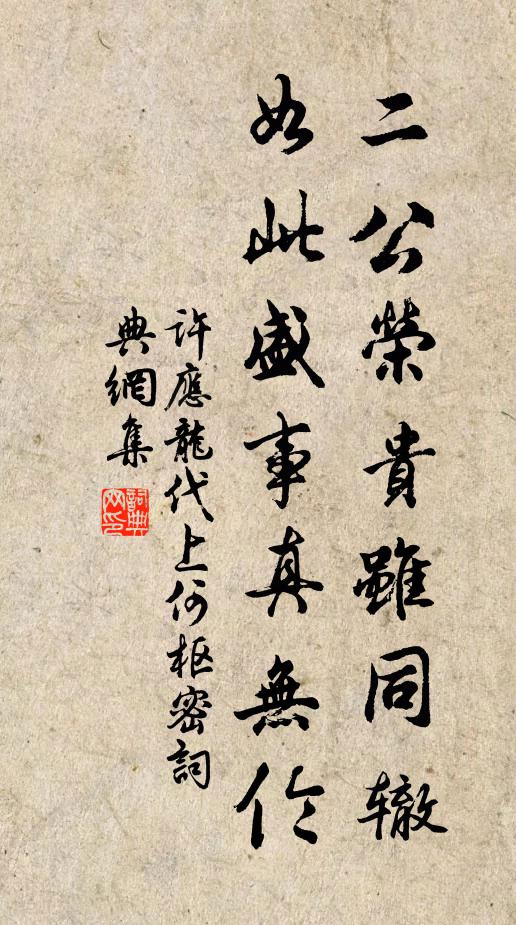 二公榮貴雖同辙
如此盛事真無伦
許應龍代上何枢密詞
典網集
詞典网印